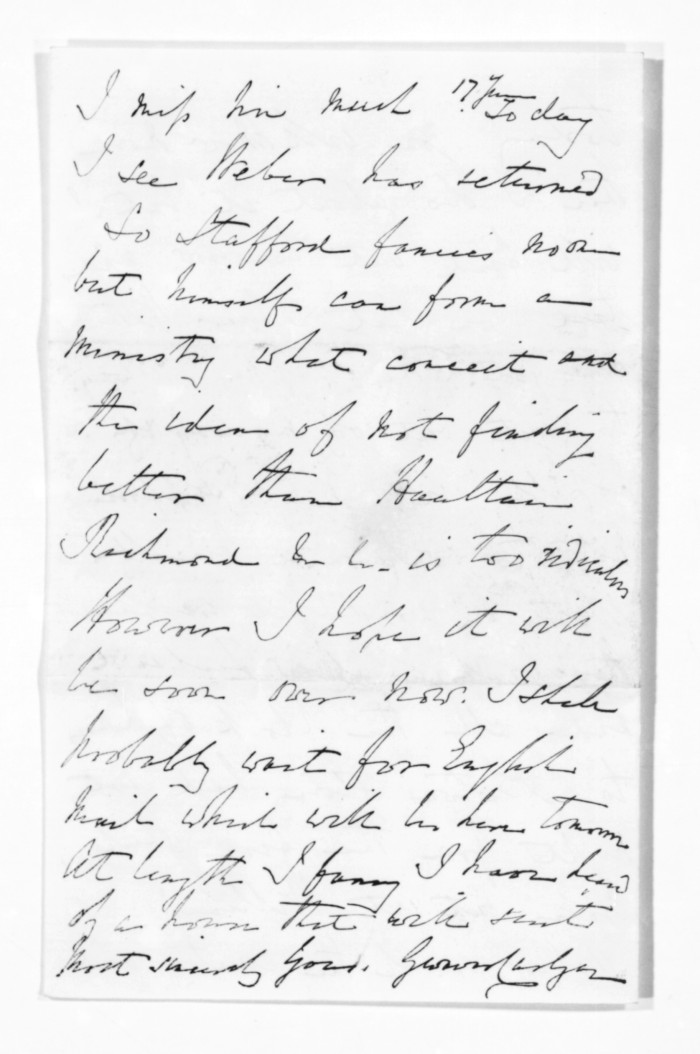 I miss him much 17 June Today
I see Weber has returned
So Stafford fancies no one
but himself can form a
Ministry what conceit and
the idea of not finding
better than Haultain
Richmond is too ridiculous
However I hope it will
be soon over now. I shall
probably wait for English
Mail which will be here tomorrow
At length I fancy I have heard
of a house that will suit
Most sincerely yours.